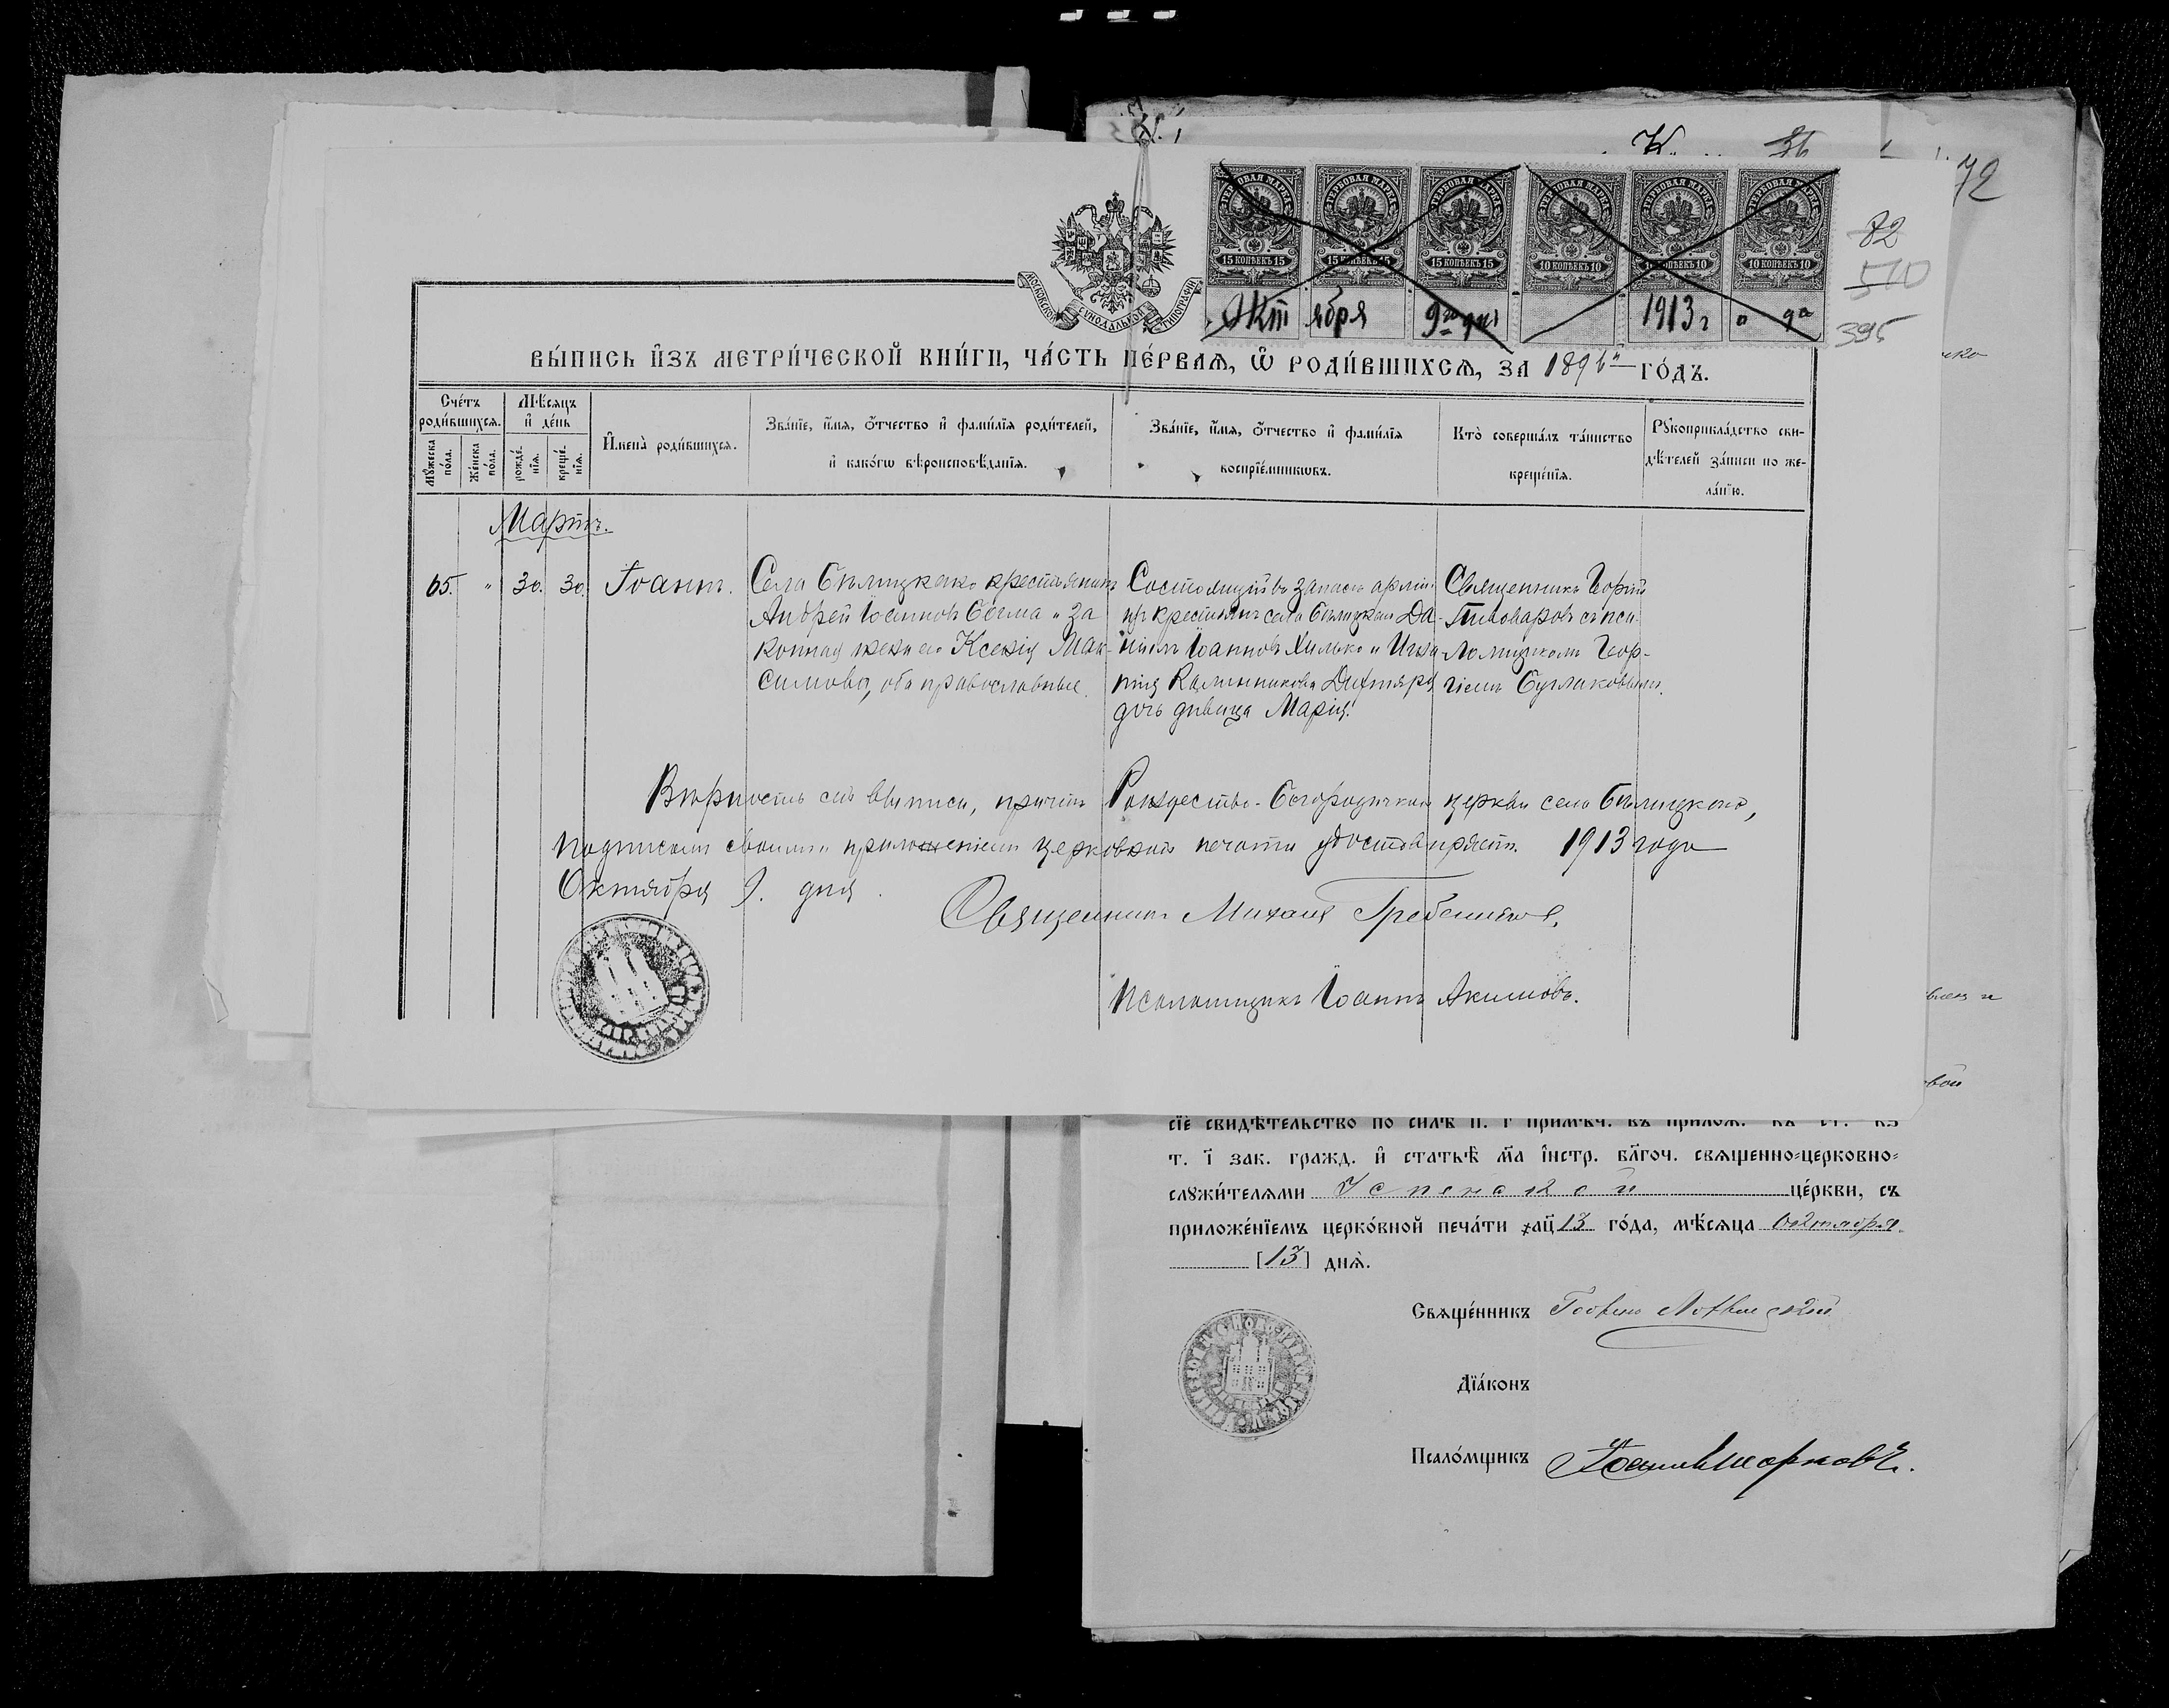 72
82
510
395
ГЕРБОВАЯ МАРКА ГЕРБОВАЯ МАРКА ГЕРБОВАЯ МАРКА ГЕРБОВАЯ МАРКА ГЕРБОВАЯ МАРКА ГЕРБОВАЯ МАРКА
15 КОПѢЕКЪ 15 15 КОПѢЕКЪ 15 15 КОПѢЕКЪ 15 10 КОПѢЕКЪ 10 10 КОПѢЕКЪ 10 10 КОПѢЕКЪ 10
Окт ября 9го дня 1913 г о да
МОСКОВСКОЙ СѴНОДАЛЬНОЙ ТИПОГРАФІИ
ВЫ́ПИСЬ И҆ЗЪ МЕТРИ́ЧЕСКОЙ КНИ́ГИ, ЧА́СТЬ ПЕ́РВАѦ, Ѿ РОДИ́ВШИХСѦ, ЗА 1896й ГО́ДЪ.
Сче́тъ роди́вшихсѧ.
Мꙋ́жеска по́ла.
Же́нска по́ла.
Мѣ́сѧцъ и҆ де́нь
рожде́нїѧ.
креще́нїѧ.
И҆мена̀ роди́вшихсѧ.
Зва́нїе, и҆́мѧ, ѻ҆́тчество и҆ фами́лїѧ роди́телей,
и҆ како́гѡ вѣроисповѣ́данїѧ.
Зва́нїе, и҆́мѧ, ѻ҆́тчество и҆ фами́лїѧ
воспрїе́мниковъ.
Кто̀ соверша́лъ та́инство
креще́нїѧ.
Рꙋкоприкла́дство сви-
дѣ́телей за́писи по же-
ла́нїю.
Мартъ.
65. " 30. 30. Іоаннъ.
Села Бѣлицкаго крестьянинъ
Андрей Іоанновъ Бѣгма и за
конная жена его Ксенія Мак-
симова, оба православные.
Состоящій въ запасѣ арміи
изъ крестьянъ села Бѣлицкаго Да-
ніилъ Іоанновъ Хилько и Игна-
тія Калинникова Дихтяра
дочь дѣвица Марія.
Священникъ Георгій
Пивоваровъ съ пса-
ломщикомъ Геор-
гіемъ Бурлаковымъ.
Вѣрность сей выписи, причтъ Рождество-Богородичной церкви села Бѣлицкаго,
подписомъ своимъ и приложеніемъ церковной печати удостовѣряетъ. 1913 года
Октября 9. дня.
Священникъ Михаилъ Гребенниковъ,
Псаломщикъ Іоаннъ Акимовъ.
сїѐ свидѣ́тельство по си́лѣ п. г҃ примѣ́ч. въ прилож. къ ст.
т. і҃ зак. гражд. и҆ статьѣ̀ м҃а і҆нстр. бл҃гоч. свѧще́нно-церковно-
слꙋжи́телѧми Успенской це́ркви, съ
приложе́нїемъ церко́вной печа́ти ҂ац҃ 13 го́да, мѣ́сѧца Октября
[13] днѧ̀.
Свѧще́нникъ
Дїа́конъ
Псало́мщикъ